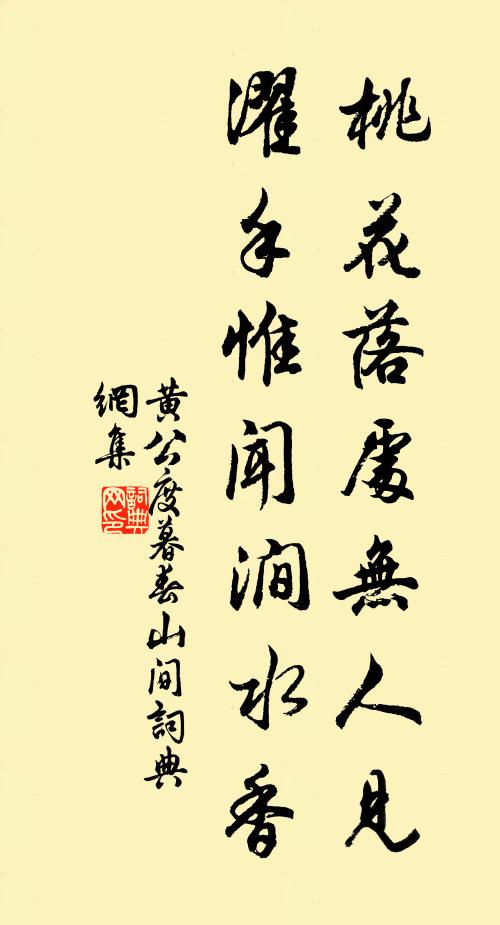 桃花落處無人見
濯手惟聞澗水香
黃公度暮春山間詞典
網集
詞典
网印